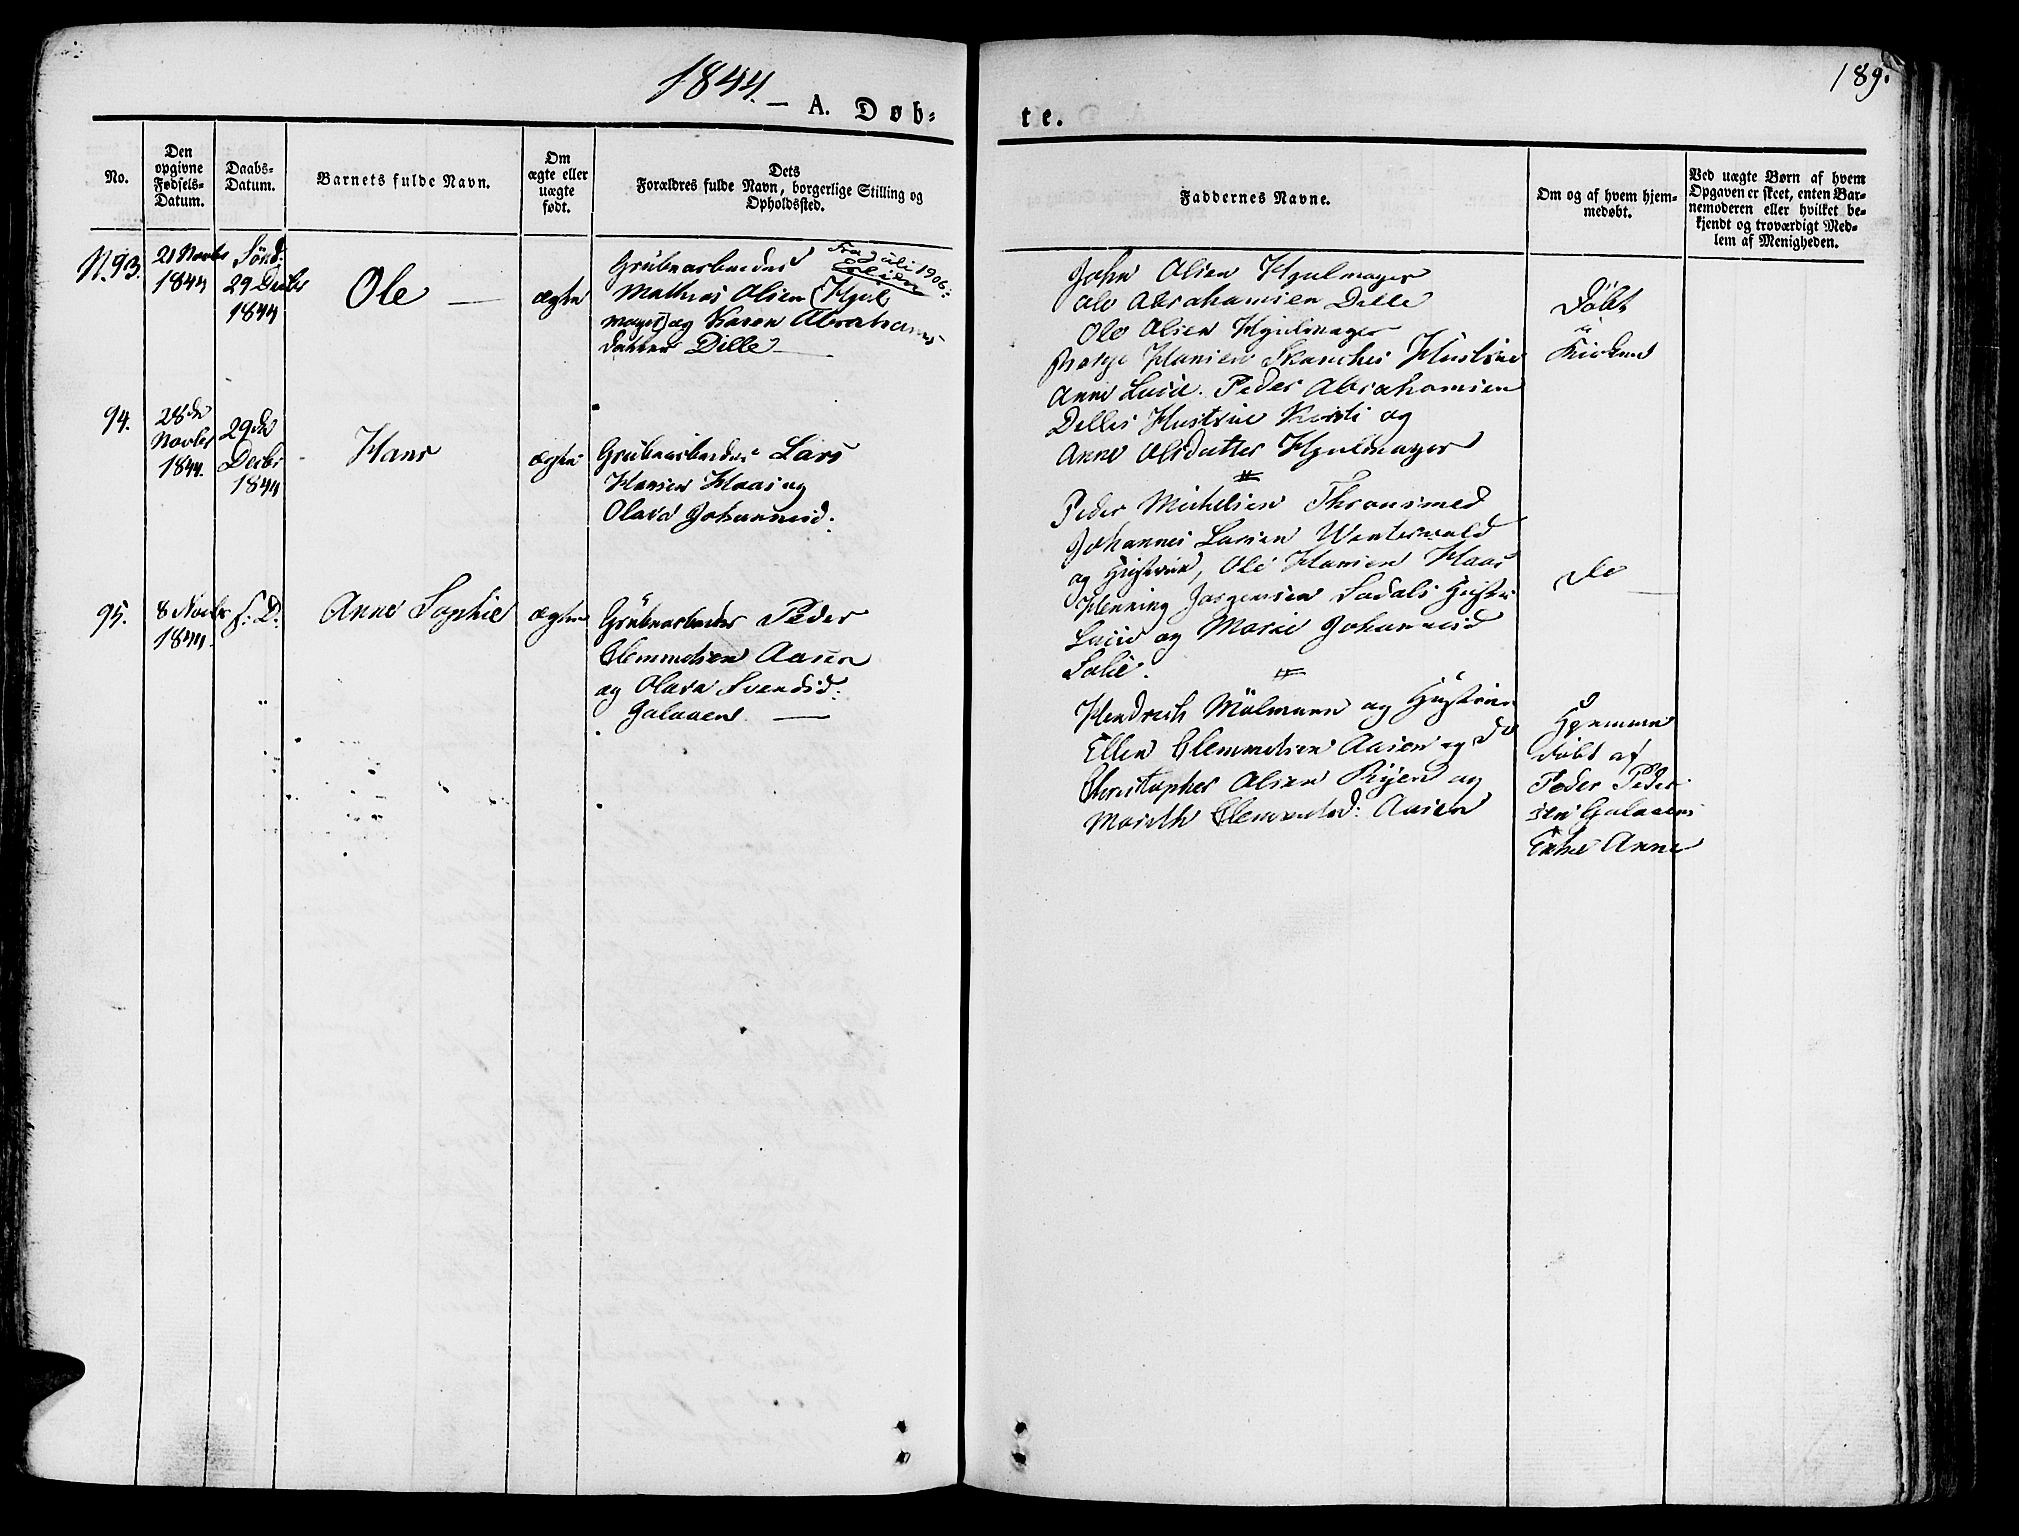 1844. — A. Døb-
te.
189.
No.
Den
opgivne
Fødsels-
Datum.
Daabs-
Datum.
Barnets fulde Navn.
Om
ægte eller
uægte
født.
Dets
Forældres fulde Navn, borgerlige Stilling og
Opholdssted.
Faddernes Navne.
Om og af hvem hjem-
medøbt.
Ved uægte Børn af hvem
Opgaven er skeet, enten Bar-
nemoderen eller hvilket be-
kjendt og troværdigt Med-
lem af Menigheden.
N. 93.
21 Novbr
1844
Sønd:
29 Decbr
1844
Ole —
ægte
Grubearbeider
Fra Juli 1906:
Mathias Olsen (Hjul
mager) og Karen Abrahams
datter Dille —
John Olsen Hjulmager
Ole Abrahamsen Dille
Ole Olsen Hjulmager
Hansen Skanches Hustrue
Anne Lucie. Peder Abrahamsen
Dilles Hustrue Kirsti og
Anne Olsdatter Hjulmager
Døbt
i
Kirken
94.
28de
Novbr
1844.
29de
Decbr
1844
Hans
ægte
Grubearbeider Lars
Hansen Haas og
Olava Johannesd:
Peder Michelsen Thronsmed
Johannes Larsen Wintervold
og Hustrue, Ole Hansen Haas
Henning Jørgensen Sodals Hustru
Lucie og Marie Johannesd
Solie.
do —
95.
8 Novbr
1844.
f: D:
Anne Sophie
ægte
Grubearbeider Peder
Clemmetsen Aasen
og Olava Svendsd:
Galaaen —
Hendrich Mølmann og Hustrue
Ellen Clemmetsen Aasen og do
Christopher Olsen Ryen og
Marith Clemmetsd: Aasen
Hjemme
døbt af
Peder Peder
sen Galaaens
Enke Anne